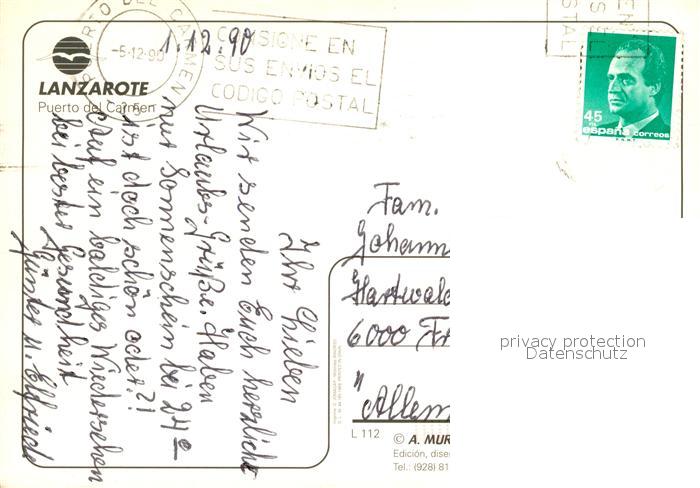 LANZAROTE
Puerto del Carmen
PUERTO DEL CARMEN
-5-12-90
1.12.90
CONSIGNE EN
SUS ENVIOS EL
CODIGO POSTAL
EN
ES
STAL
45
PTA
españa correos
Ihr Lieben
Wir senden Euch herzliche
Urlaubs-Grüße. Haben
nur Sonnenschein bei 24°
ist doch schön oder?!
Auf ein baldiges Wiedersehen
bei bester Gesundheit
Günter u. Elfriede
Fam.
Johann
Hartwald
6000 Fr
"Allem
privacy protection
Datenschutz
L 112
© A. MUR
Edición, dise
Tel.: (928) 81